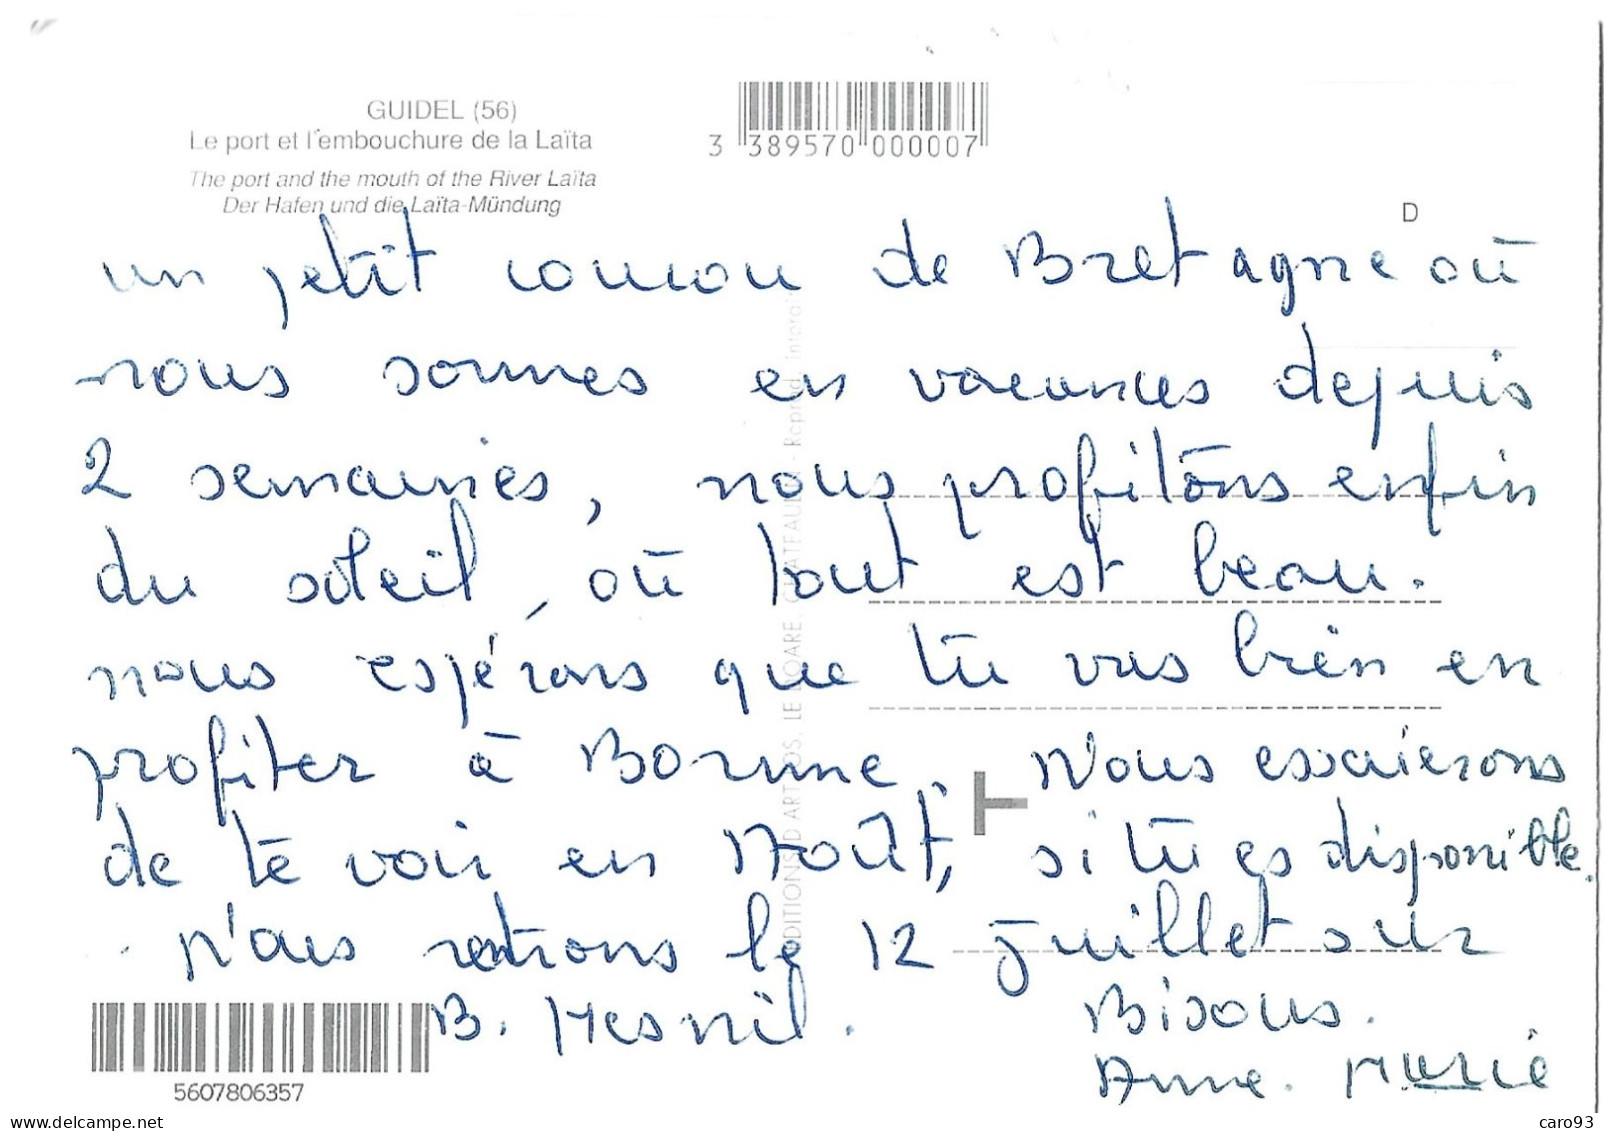 GUIDEL (56)
Le port et l'embouchure de la Laïta
The port and the mouth of the River Laïta
Der Hafen und die Laïta-Mündung
3 389570 000007
D
un petit coucou de Bretagne où
nous sommes en vacances depuis
2 semaines, nous profitons enfin
du soleil, où tout est beau.
nous espérons que tu vas bien en
profiter à Bonne. Nous essaierons
de te voir en Août, si tu es disponible.
Nous rentrons le 12 juillet sur
B. Mesnil. Bisous.
Anne. Marie
EDITIONS D'ART JOS, LE DOARE, CHATEAULIN - Reprod. interdite
5607806357
delcampe.net
caro93